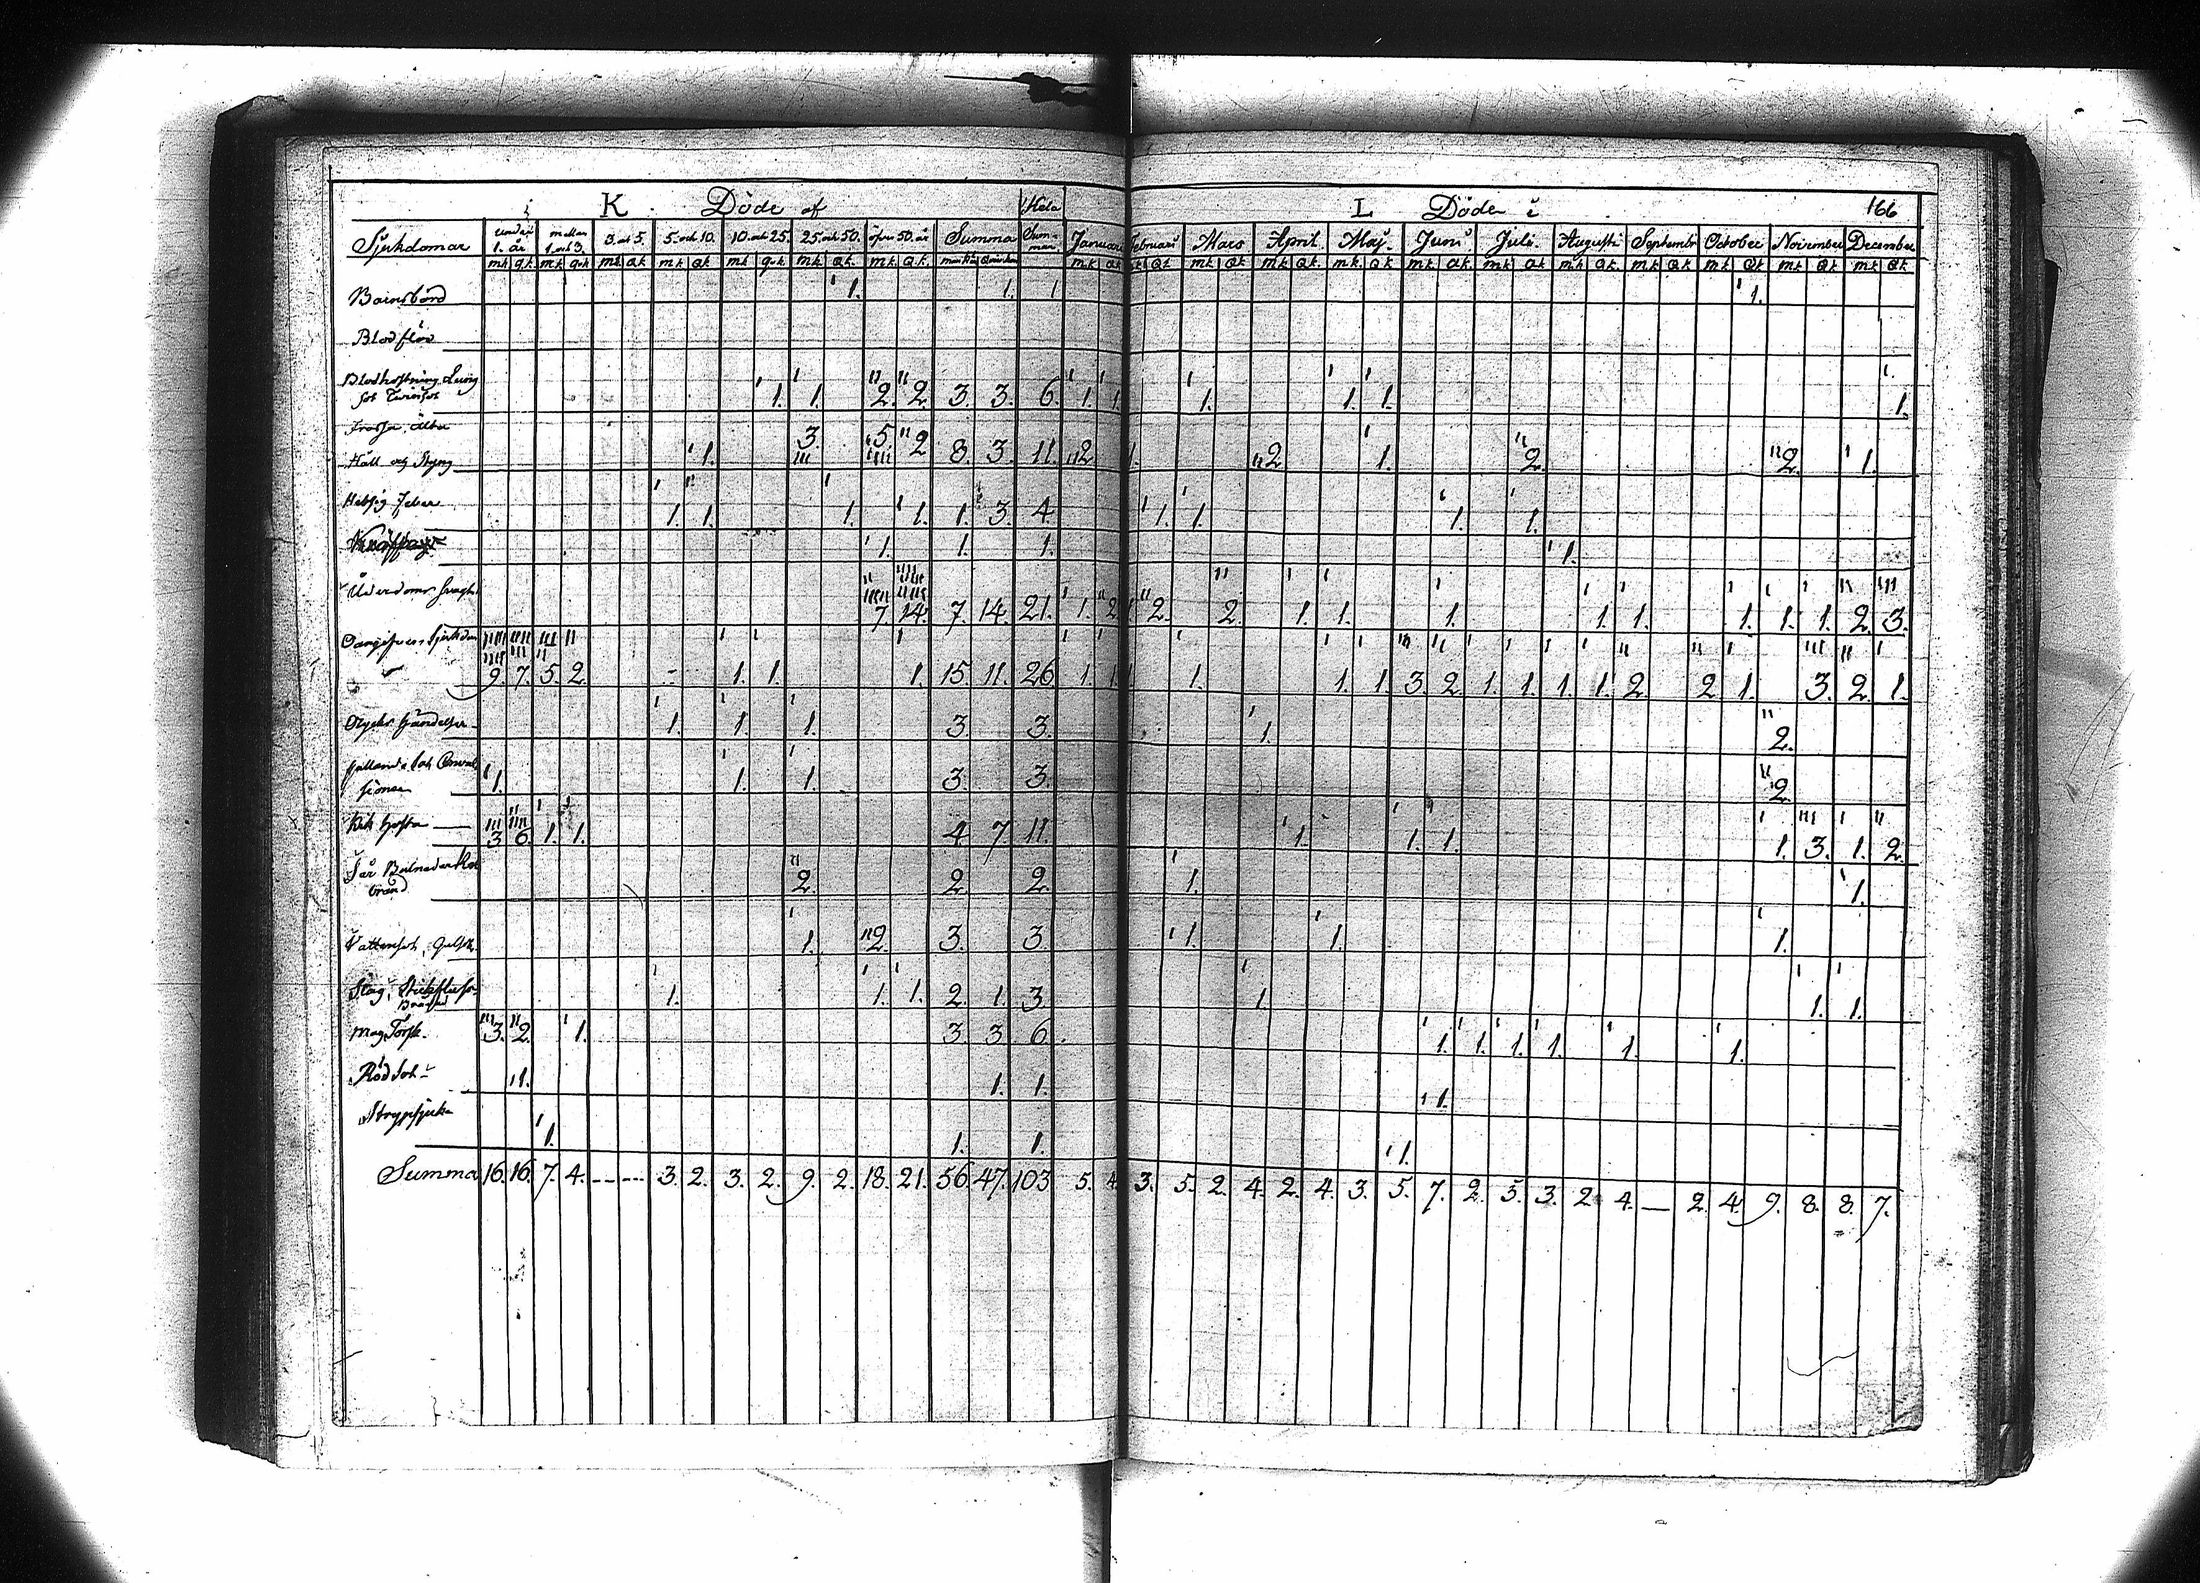 K Döde af Hela L Döde i 166
Sjukdomar under 1. år mellan 1. och 3. 3. och 5. 5. och 10. 10. och 25. 25. och 50. öfver 50. år Summa Summan Januari Februari Mars April Maj Juni Juli Augusti Septembr October November December
mk qk mk qvk mk Qk mk Qk mk qvk mk Qk mk Qk mankön Qvinkön mk Qk Qk mk Qk mk Qk mk Qk mk Qk mk Qk mk Qk mk Qk mk Qk mk Qk mk Qk
Barnsbörd 1. 1. 1 1.
Blodflöd
Blodhostning Lung sot Tvinsot 1. 1. 2. 2. 3. 3. 6. 1. 1. 1. 1. 1. 1.
Frossa, Älta
Håll och Styng 1. 3. 5. 2 8. 3. 11. 2. 1. 2. 1. 2. 2. 1.
Hetsig Feber 1. 1. 1. 1. 1. 3. 4. 1. 1. 1. 1.
1. 1. 1. 1.
Ålderdoms svaghet 7. 14. 7. 14. 21. 1. 2. 1. 2. 2. 1. 1. 1. 1. 1. 1. 1. 1. 2. 3.
Oangifven Sjukdom 9. 7. 5. 2. - 1. 1. 1. 15. 11. 26. 1. 1. 1 1. 1. 1. 3. 2. 1. 1. 1. 1. 2. 2. 1. 3. 2. 1.
Olyckshändelser 1. 1. 1. 3. 3. 1. 2.
Fallande sot Convulsioner 1. 1. 1. 3. 3. 2.
Kikhosta 3. 6. 1. 1. 4. 7. 11. 1. 1. 1. 1. 3. 1. 2.
Sår Bulnader Kallbrand 2. 2. 2. 1. 1.
Vattusot, Gulsot 1. 2. 3. 3. 1. 1. 1.
Slag, Stickfluss 1. 1. 1. 2. 1. 3. 1. 1. 1.
Mag, Torsk 3. 2. 1. 3. 3. 6. 1. 1. 1. 1. 1. 1.
Rödsot 1. 1. 1. 1.
Strypsjuka 1. 1. 1. 1.
Summa 16. 16. 7. 4. ---- 3. 2. 3. 2. 9. 2. 18. 21. 56. 47. 103 5. 4. 3. 5. 2. 4. 2. 4. 3. 5. 7. 2. 5. 3. 2. 4. — 2. 4. 9. 8. 8. 7.